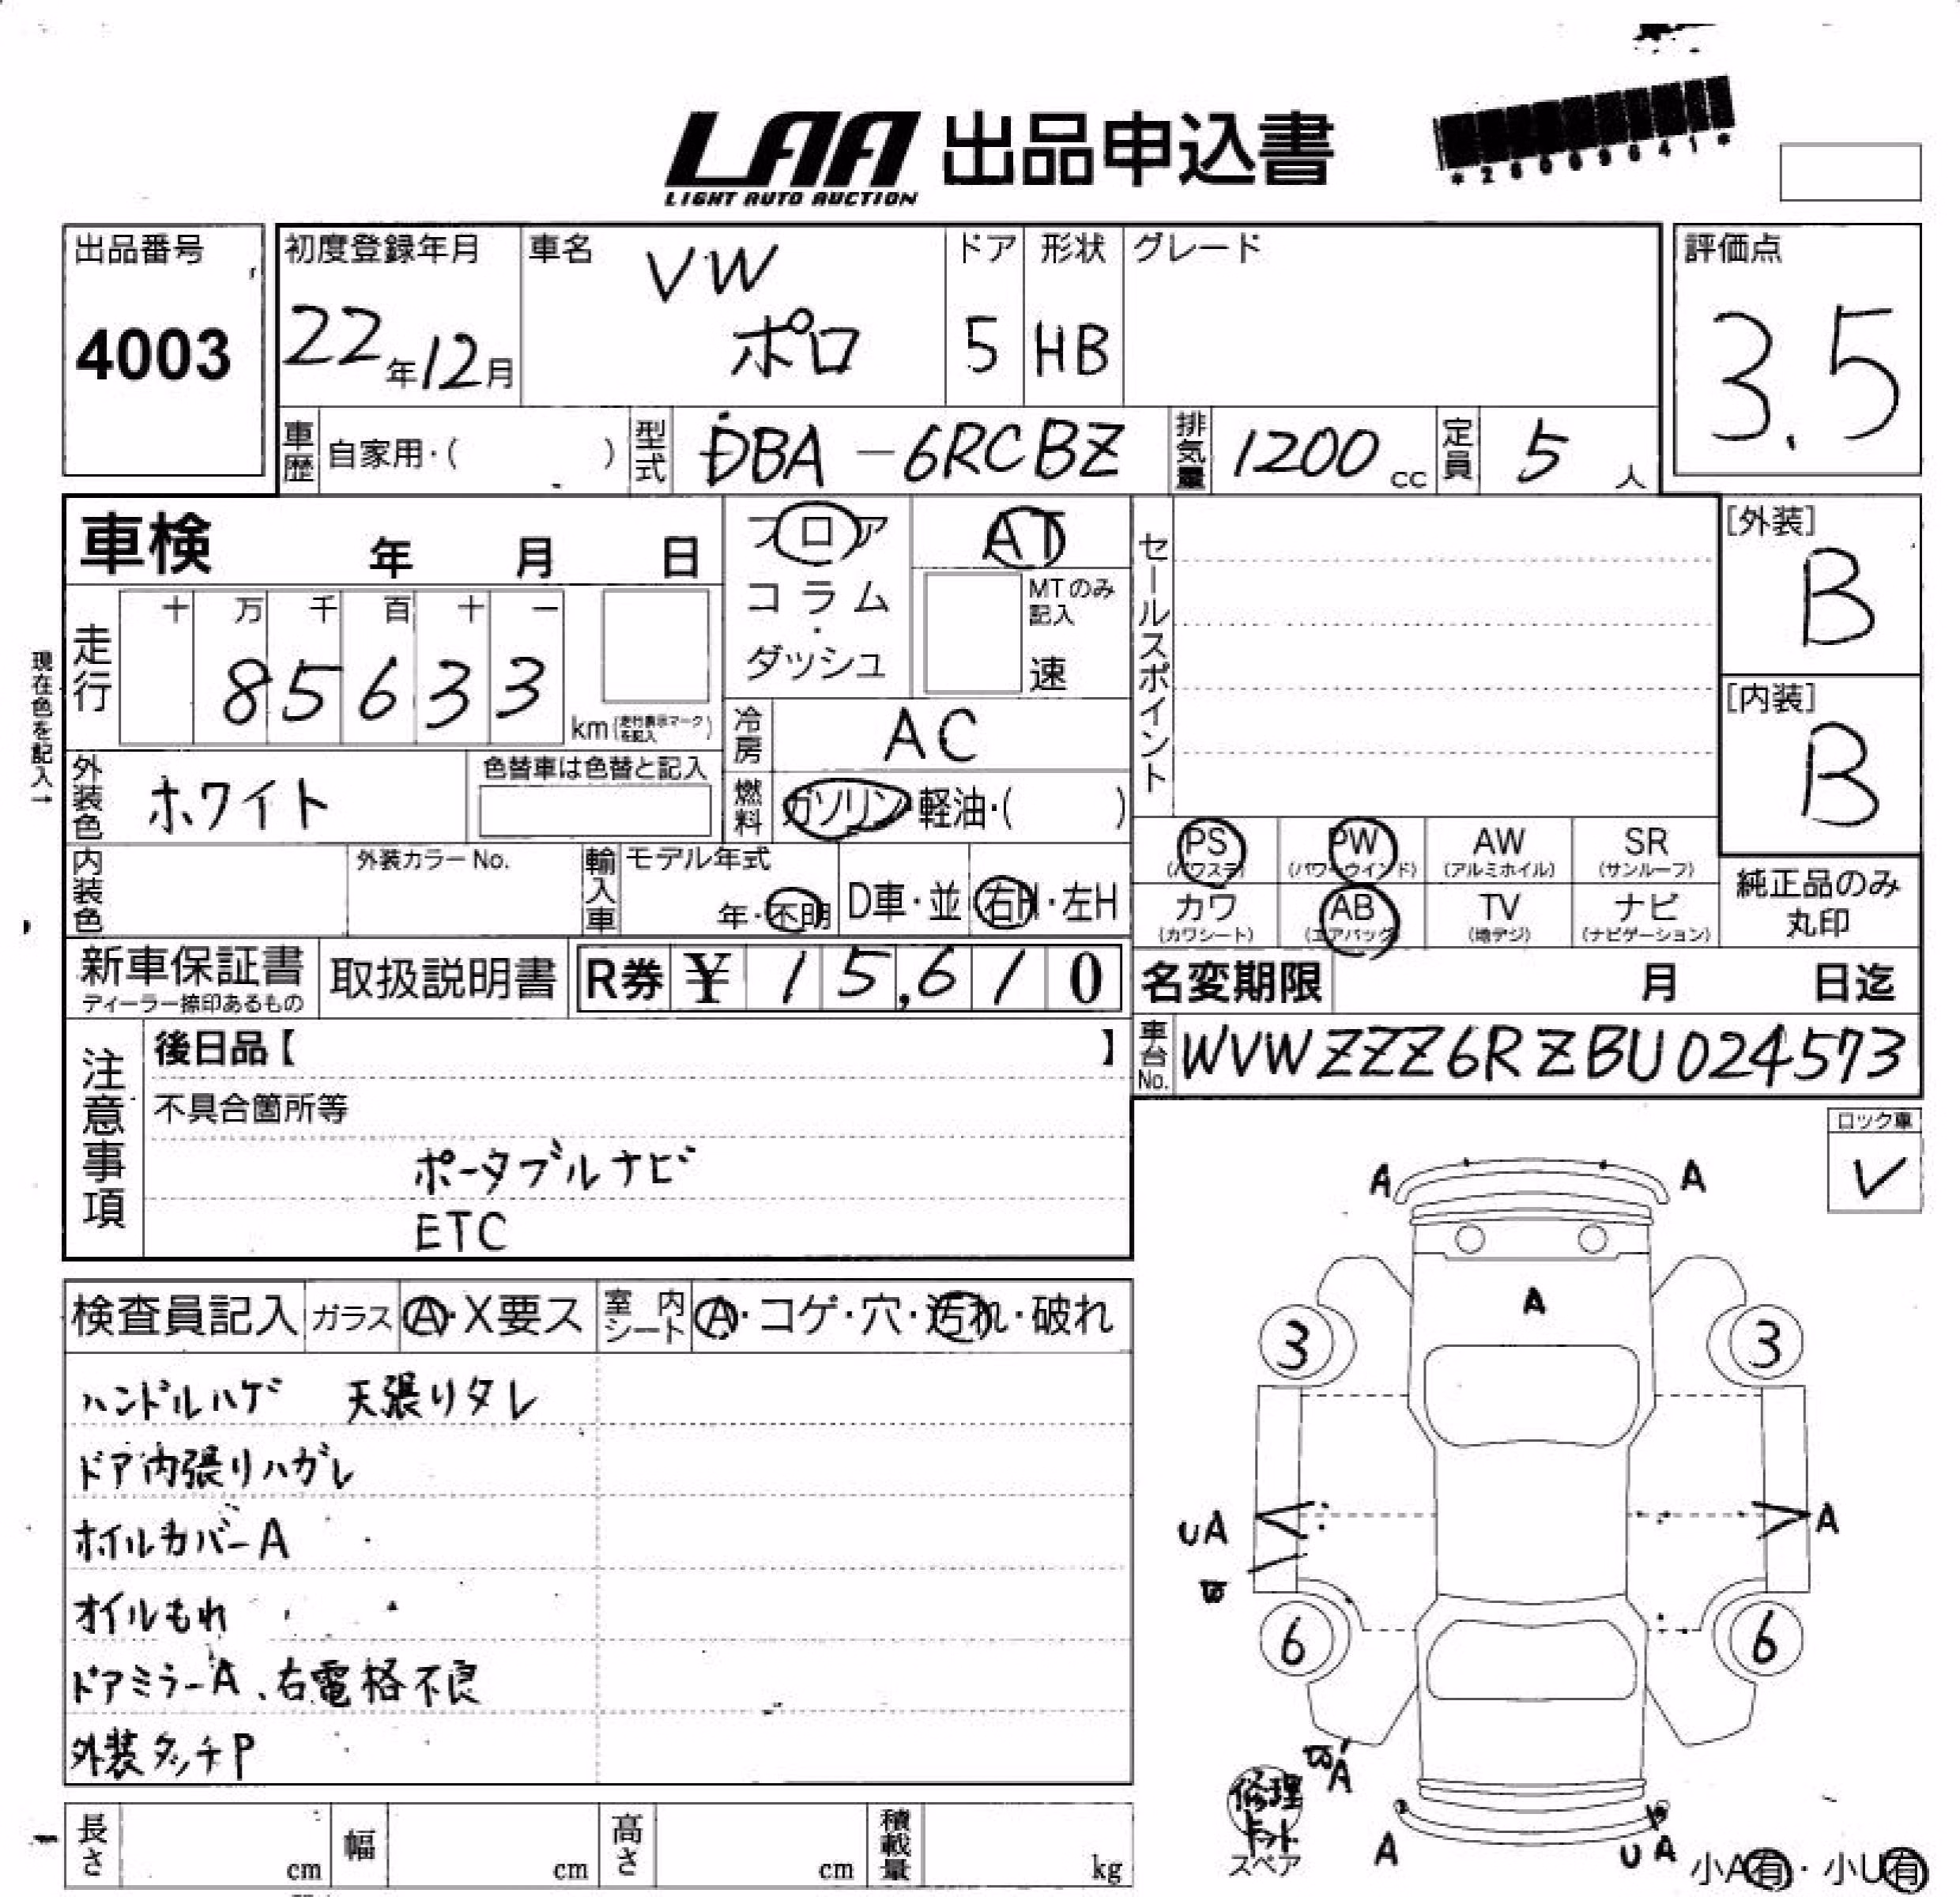 LAA 出品申込書
LIGHT AUTO AUCTION
*26009641*
出品番号
4003
初度登録年月
22年12月
車名
VW
ポロ
ドア
5
形状
HB
グレード
評価点
3.5
車歴 自家用・( )
型式 DBA-6RCBZ
排気量 1200 cc
定員 5 人
車検 年 月 日
フロア
コラム
・
ダッシュ
AT
MTのみ
記入
速
セールスポイント
[外装]
B
[内装]
B
現在色を記入→
走行
十 万 千 百 十 一
8 5 6 3 3
km (走行表示マークを記入)
冷房 AC
外装色 ホワイト
色替車は色替と記入
燃料 ガソリン・軽油・( )
内装色
外装カラーNo.
輸入車
モデル年式
年・不明
D車・並
右H・左H
PS (パワステ)
PW (パワーウインド)
AW (アルミホイル)
SR (サンルーフ)
カワ (カワシート)
AB (エアバック)
TV (地デジ)
ナビ (ナビゲーション)
純正品のみ
丸印
新車保証書
ディーラー捺印あるもの
取扱説明書
R券 ¥ 15,610
名変期限 月 日迄
車台No. WVWZZZ6RZBU024573
注意事項
後日品【 】
不具合箇所等
ポータブルナビ
ETC
ロック車
✓
検査員記入
ガラス Ⓐ・X要ス
室内シート Ⓐ・コゲ・穴・汚れ・破れ
ハンドルハゲ 天張りタレ
ドア内張りハガレ
ホイルカバーA
オイルもれ
ドアミラーA、右電格不良
外装タッチP
A A
A
3 3
UA A
6 6
A
修理
キット
スペア
A UA
小A有・小U有
長さ cm
幅 cm
高さ cm
積載量 kg